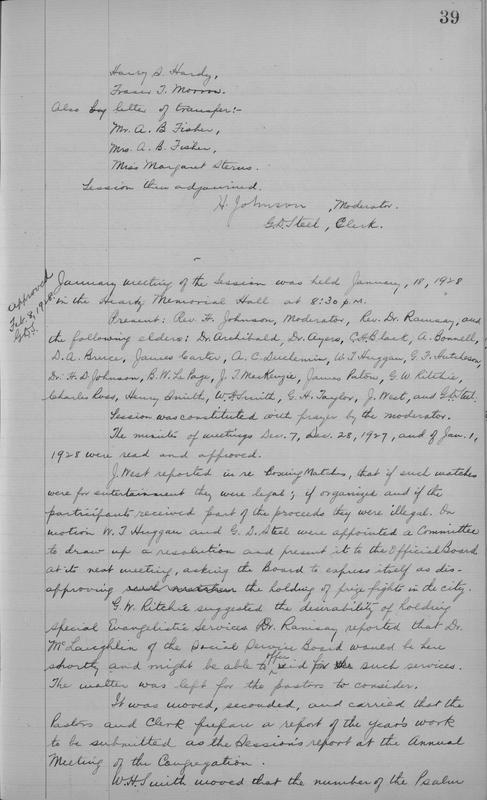 39
Harry S. Hardy,
Fraser T. Morrow.
Also by letter of transfer:-
Mr. A. B. Fisher,
Mrs. A. B. Fisher,
Miss Margaret Sterns.
Session then adjourned.
H. Johnson, Moderator.
G.D. Steel, Clerk.
approved
Feb. 8, 1928.
G.D.S.
January meeting of the Session was held January, 18, 1928
in the Heartz Memorial Hall at 8:30 p.m.
Present: Rev. H. Johnson, Moderator, Rev. Dr. Ramsay, and
the following elders: Dr. Archibald, Dr. Ayers, C.H. Black, A. Bonnell,
D.A. Bruce, James Carter, A. C. Duchemin, W. T. Huggan, G. F. Hutcheson,
Dr. H. D. Johnson, B. W. Le Page, J. T. MacKenzie, James Paton, G. W. Ritchie,
Charles Ross, Henry Smith, W. H. Smith, G. H. Taylor, J. West, and G. D. Steel.
Session was constituted with prayer by the moderator.
The minutes of meetings Dec. 7, Dec. 28, 1927, and of Jan. 1,
1928 were read and approved.
J. West reported in re Boxing Matches, that if such matches
were for entertainment they were legal; if organized and if the
participants received part of the proceeds they were illegal. On
motion W. T. Huggan and G. D. Steel were appointed a Committee
to draw up a resolution and present it to the Official Board
at its next meeting, asking the Board to express itself as dis-
approving such matches the holding of prize fights in the city.
G. W. Ritchie suggested the desirability of holding
special Evangelistic Services. Dr. Ramsay reported that Dr.
McLaughlin of the Social Service Board would be here
shortly and might be able to offer aid for such services.
The matter was left for the pastors to consider.
It was moved, seconded, and carried that the
Pastors and Clerk prepare a report of the year's work
to be submitted as the Session's report at the Annual
Meeting of the Congregation.
W. H. Smith moved that the number of the Psalm